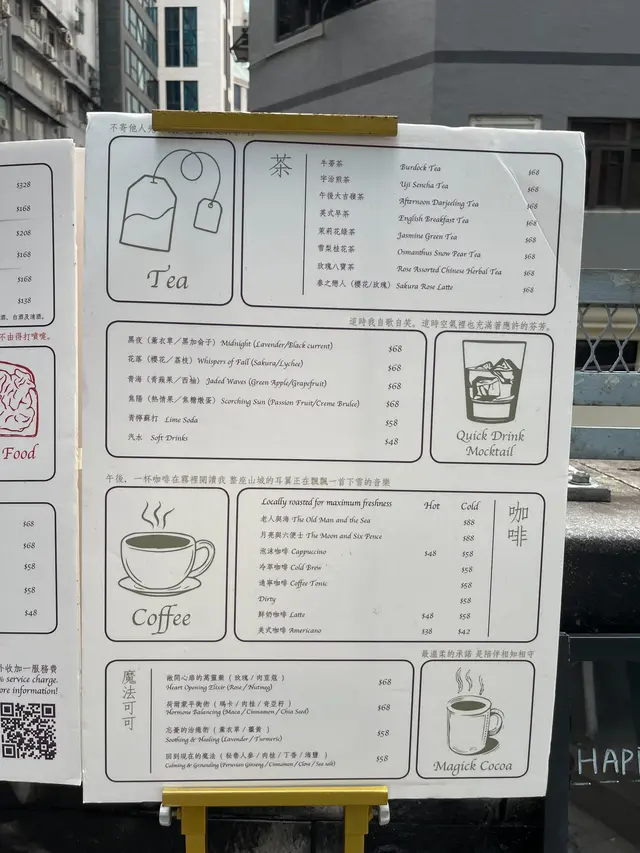 $328
$168
$208
$168
$168
$138
不由得打噴嚏。
Food
$68
$68
$58
$58
$48
外收加一服務費
service charge.
more information!
不寄他人先
Tea
茶
牛蒡茶 Burdock Tea $68
宇治煎茶 Uji Sencha Tea $68
午後大吉嶺茶 Afternoon Darjeeling Tea $68
英式早茶 English Breakfast Tea $68
茉莉花綠茶 Jasmine Green Tea $68
雪梨桂花茶 Osmanthus Snow Pear Tea $68
玫瑰八寶茶 Rose Assorted Chinese Herbal Tea $68
春之戀人（櫻花/玫瑰） Sakura Rose Latte $68
這時我自歌自笑，這時空氣裡也充滿著應許的芬芳。
黑夜（薰衣草／黑加侖子） Midnight (Lavender/Black current) $68
花落（櫻花／荔枝） Whispers of Fall (Sakura/Lychee) $68
青海（青蘋果／西柚） Jaded Waves (Green Apple/Grapefruit) $68
焦陽（熱情果／焦糖燉蛋） Scorching Sun (Passion Fruit/Creme Brulee) $68
青檸蘇打 Lime Soda $58
汽水 Soft Drinks $48
Quick Drink
Mocktail
午後，一杯咖啡在霧裡閱讀我 整座山城的耳翼正在飄飄一首下雪的音樂
Coffee
咖啡
Locally roasted for maximum freshness Hot Cold
老人與海 The Old Man and the Sea $88
月亮與六便士 The Moon and Six Pence $88
泡沫咖啡 Cappuccino $48 $58
冷萃咖啡 Cold Brew $58
通寧咖啡 Coffee Tonic $58
Dirty $58
鮮奶咖啡 Latte $48 $58
美式咖啡 Americano $38 $42
最溫柔的承諾 是陪伴相知相守
魔法可可
敞開心扉的萬靈藥（ 玫瑰 / 肉豆蔻 ） $68
Heart Opening Elixir (Rose / Nutmeg)
荷爾蒙平衡術（ 瑪卡 / 肉桂 / 奇亞籽 ） $68
Hormone Balancing (Maca / Cinnamon / Chia Seed)
忘憂的治癒術（ 薰衣草 / 薑黃 ） $58
Soothing & Healing (Lavender / Turmeric)
回到現在的魔法（ 秘魯人參 / 肉桂 / 丁香 / 海鹽 ） $58
Calming & Grounding (Peruvian Ginseng / Cinnamon / Clove / Sea salt)
Magick Cocoa
HAP